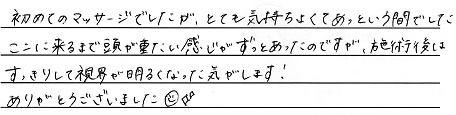 初めてのマッサージでしたが、とても気持ちよくてあっという間でした
ここに来るまで頭が重たい感じがずっとあったのですが、施術後は
すっきりして視界が明るくなった気がします!
ありがとうございました☺